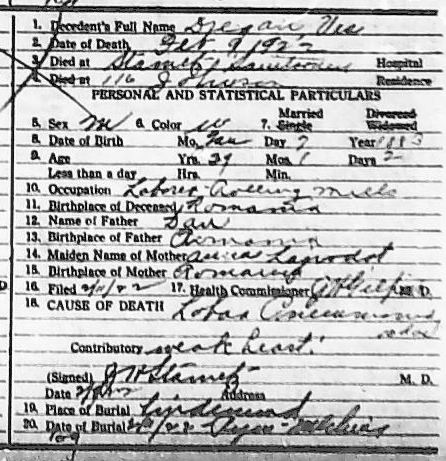 1. Decedent's Full Name
2. Date of Death Feb 9, 1922
3. Died at Stamets Hospital
4. Died at 116 Johnson Residence
PERSONAL AND STATISTICAL PARTICULARS
Married Divorced
5. Sex M 6. Color W 7. Single Widowed
8. Date of Birth Mo. Jan Day 7 Year 1883
9. Age Yrs. 39 Mos. 1 Days 2
Less than a day Hrs. Min.
10. Occupation Laborer Rolling Mills
11. Birthplace of Deceased Romania
12. Name of Father Dan
13. Birthplace of Father Romania
14. Maiden Name of Mother
15. Birthplace of Mother Romania
16. Filed 2/11/22 17. Health Commissioner M. D.
18. CAUSE OF DEATH Lobar Pneumonia
Contributory weak heart.
(Signed) J W Stamets M. D.
Date Address
19. Place of Burial Lindenwood
20. Date of Burial 2/11/22
109